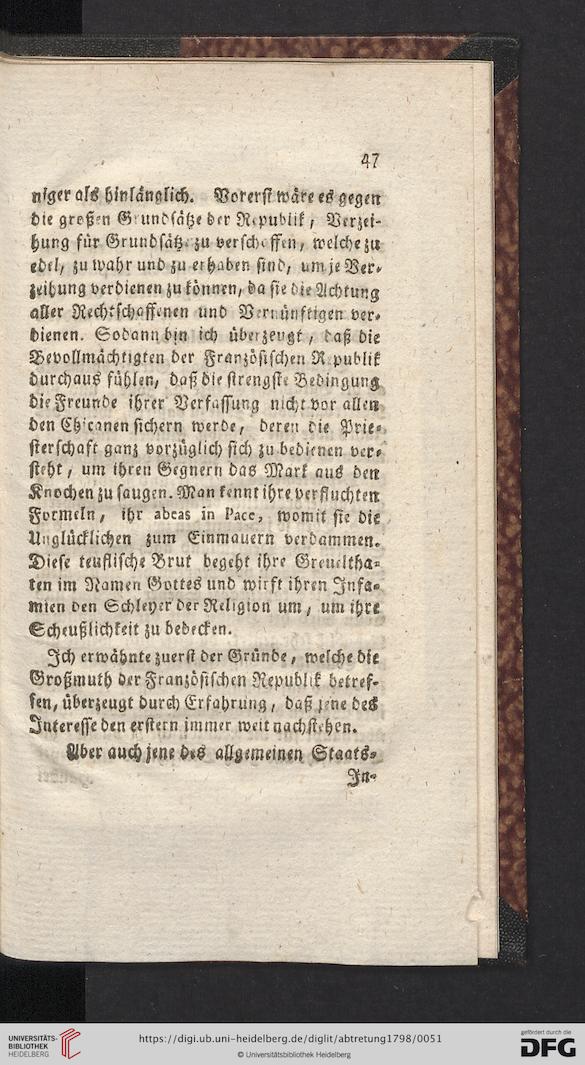 47
niger als hinlänglich. Vorerst wäre es gegen
die großen Grundsätze der Republik, Verzei-
hung für Grundsätze zu verschaffen, welche zu
edel, zu wahr und zu erhaben sind, um je Ver-
zeihung verdienen zu können, da sie die Achtung
aller Rechtschaffenen und Vernünftigen ver-
dienen. Sodann bin ich überzeugt, daß die
Bevollmächtigten der Französischen Republik
durchaus fühlen, daß die strengste Bedingung
die Freunde ihrer Verfassung nicht vor allen
den Chicanen sichern werde, deren die Prie-
sterschaft ganz vorzüglich sich zu bedienen ver-
steht, um ihren Gegnern das Mark aus den
Knochen zu saugen. Man kennt ihre verfluchten
Formeln, ihr abeas in Pace, womit sie die
Unglücklichen zum Einmauern verdammen.
Diese teuflische Brut begeht ihre Greueltha-
ten im Namen Gottes und wirft ihren Infa-
mien den Schleyer der Religion um, um ihre
Scheußlichkeit zu bedecken.
Ich erwähnte zuerst der Gründe, welche die
Großmuth der Französischen Republik betref-
fen, überzeugt durch Erfahrung, daß jene des
Interesse den erstern immer weit nachstehen.
Aber auch jene des allgemeinen Staats-
In-
UNIVERSITÄTS-
BIBLIOTHEK
HEIDELBERG
https://digi.ub.uni-heidelberg.de/diglit/abtretung1798/0051
© Universitätsbibliothek Heidelberg
gefördert durch die
DFG